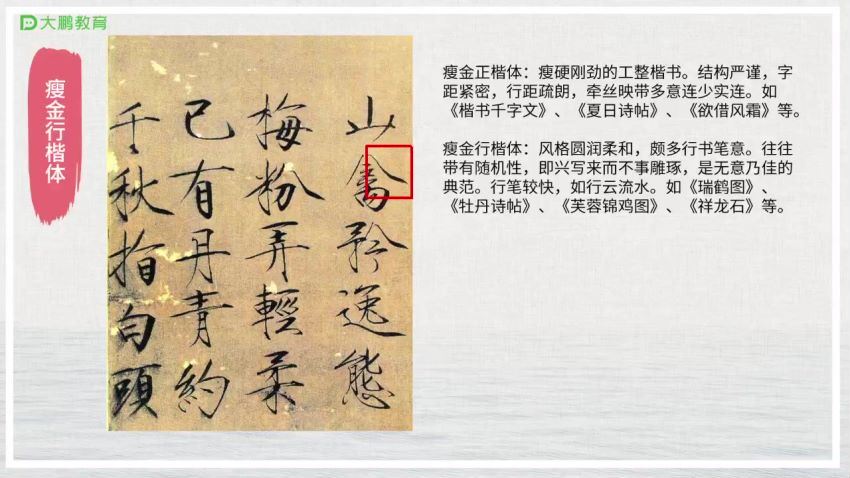 大鹏教育
瘦金行楷体
山禽矜逸態
梅粉弄輕柔
已有丹青約
千秋指白頭
瘦金正楷体：瘦硬刚劲的工整楷书。结构严谨，字
距紧密，行距疏朗，牵丝映带多意连少实连。如
《楷书千字文》、《夏日诗帖》、《欲借风霜》等。
瘦金行楷体：风格圆润柔和，颇多行书笔意。往往
带有随机性，即兴写来而不事雕琢，是无意乃佳的
典范。行笔较快，如行云流水。如《瑞鹤图》、
《牡丹诗帖》、《芙蓉锦鸡图》、《祥龙石》等。